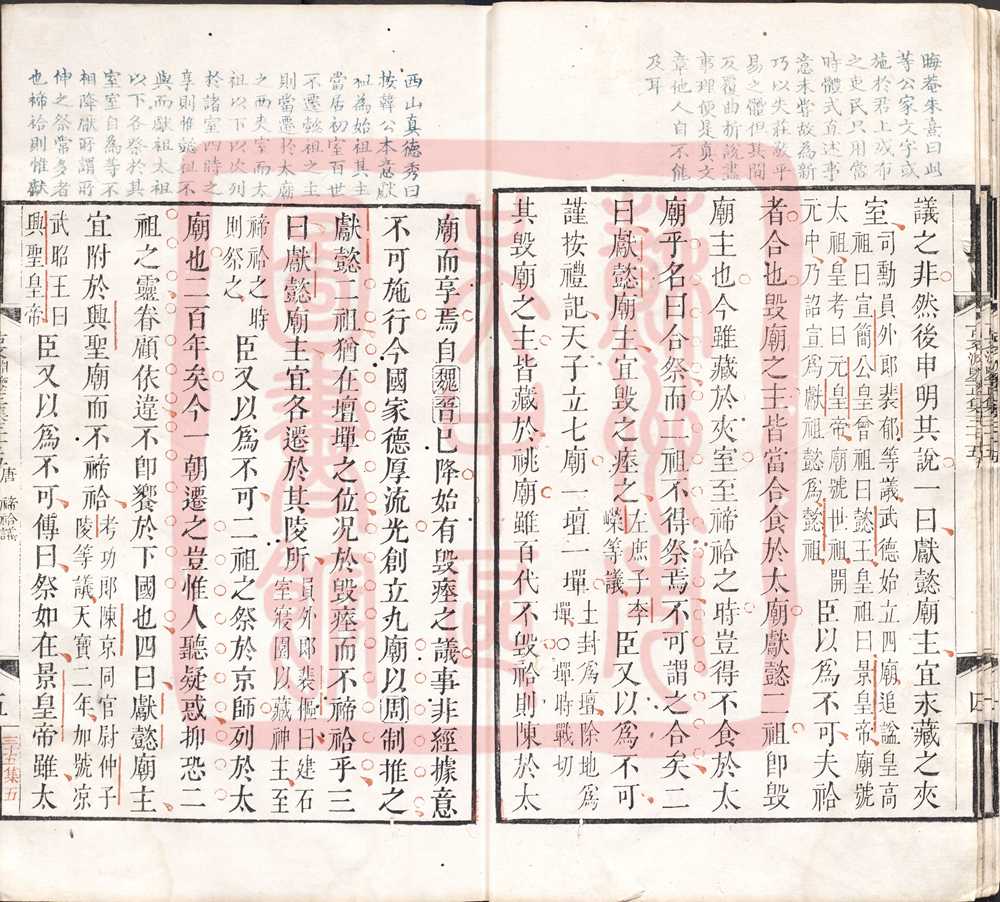 晦菴朱熹曰此
等公家文字或
施於君上或布
之吏民只用當
時體式直述事
意未嘗故為新
巧以失莊敬平
易之體但其間
反覆曲折說盡
事理便是真文
章他人自不能
及耳
議之非然後申明其說一曰獻懿廟主宜永藏之夾
室
司勳員外郎裴郁等議武德始立四廟追謚皇高
祖曰宣簡公皇曾祖曰懿王皇祖曰景皇帝廟號
太祖皇考曰元皇帝廟號世祖開
元中乃詔宣爲獻祖懿爲懿祖
臣以爲不可夫祫
者合也毀廟之主皆當合食於太廟獻懿二祖即毀
廟主也今雖藏於夾室至禘祫之時豈得不食於太
廟乎名曰合祭而二祖不得祭焉不可謂之合矣二
曰獻懿廟主宜毀之瘞之
左庶子李
嶸等議
臣又以爲不可
謹按禮記天子立七廟一壇一墠
土封爲壇除地爲
墠○墠時戰切
其毀廟之主皆藏於祧廟雖百代不毀祫則陳於太
西山真德秀曰
按韓公本意獻
祖為始祖其主
當居初室百世
不遷懿祖之主
則當遷於太廟
之西夾室而太
祖以下以次列
於諸室四時之
享則惟懿祖不
與而獻太祖
以下各祭於其
室室自為等不
相降厭所謂所
伸之祭常多者
也禘祫則惟獻
廟而享焉自魏晉已降始有毀瘞之議事非經據意
不可施行今國家德厚流光創立九廟以周制推之
獻懿二祖猶在壇墠之位况於毀瘞而不禘祫乎三
曰獻懿廟主宜各遷於其陵所
員外郎裴樞曰建石
室寢園以藏神主至
禘祫之時
則祭之
臣又以爲不可二祖之祭於京師列於太
廟也二百年矣今一朝遷之豈惟人聽疑惑抑恐二
祖之靈眷顧依違不即饗於下國也四曰獻懿廟主
宜附於興聖廟而不禘祫
考功郎陳京同官尉仲子
陵等議天寶二年加號凉
武昭王曰
興聖皇帝
臣又以爲不可傳曰祭如在景皇帝雖太
唐
禘祫議
五